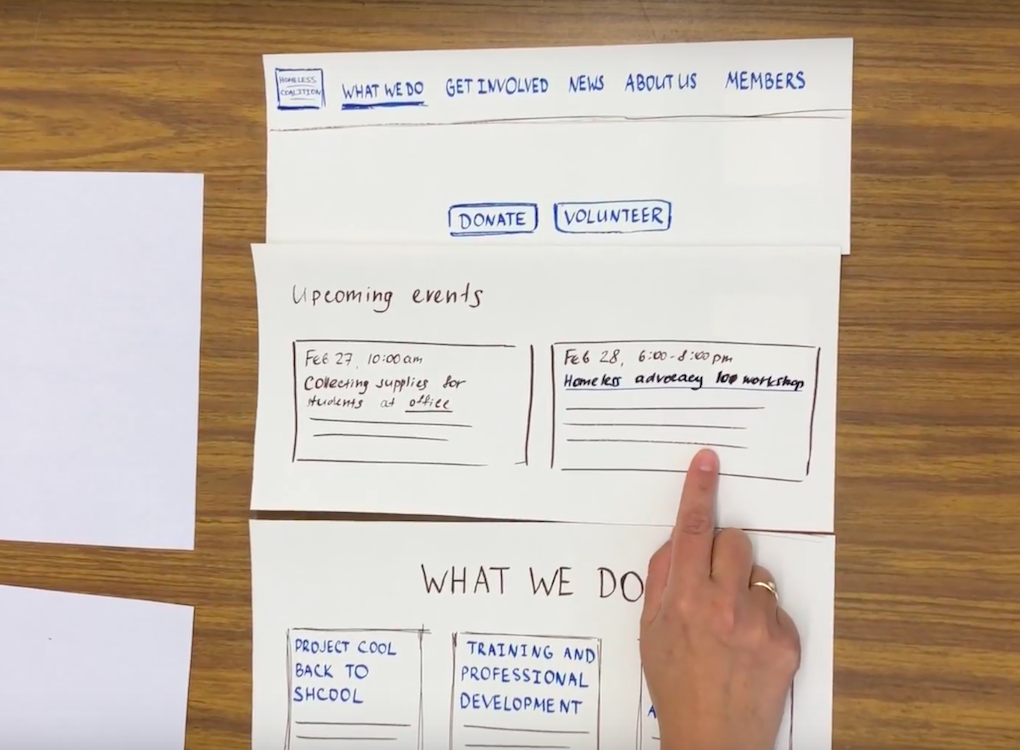 HOMELESS
COALITION
WHAT WE DO GET INVOLVED NEWS ABOUT US MEMBERS
DONATE VOLUNTEER
Upcoming events
Feb 27, 10:00 am
Collecting supplies for
students at office
Feb 28, 6:00-8:00 pm
Homeless advocacy 100 workshop
WHAT WE DO
PROJECT COOL
BACK TO
SHCOOL
TRAINING AND
PROFESSIONAL
DEVELOPMENT
A